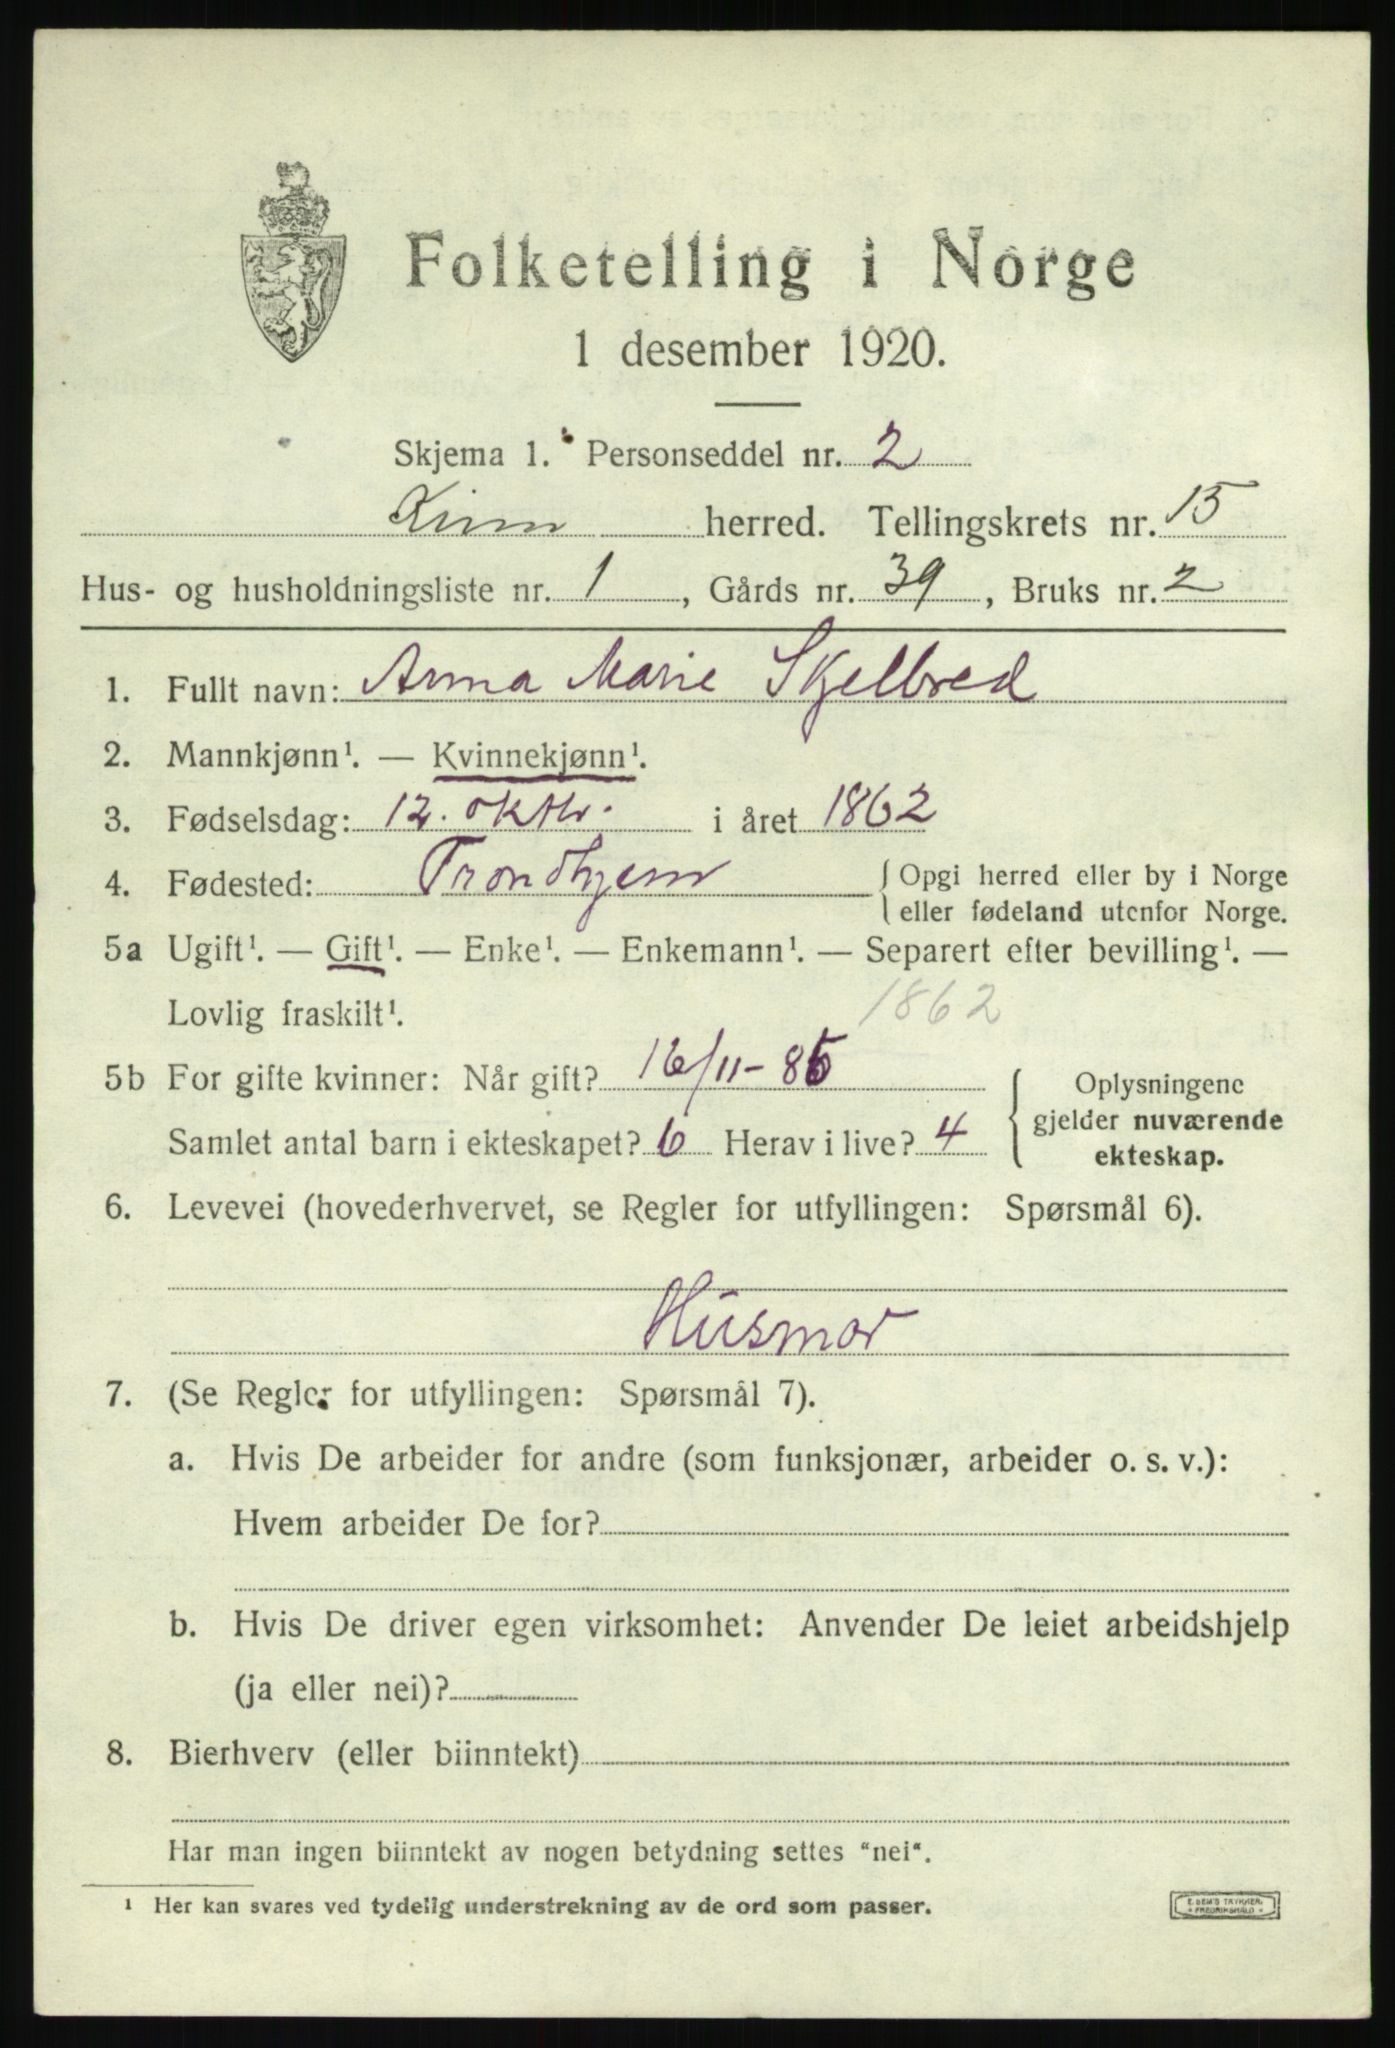 Folketelling i Norge
1 desember 1920.
Skjema 1. Personseddel nr. 2
Kinn herred. Tellingskrets nr. 15
Hus- og husholdningsliste nr. 1, Gårds nr. 39, Bruks nr. 2
1. Fullt navn: Anna Marie Skjelbred
2. Mannkjønn¹. — Kvinnekjønn¹.
3. Fødselsdag: 12. oktbr. i året 1862
4. Fødested: Trondhjem { Opgi herred eller by i Norge
eller fødeland utenfor Norge.
5a Ugift¹. — Gift¹. — Enke¹. — Enkemann¹. — Separert efter bevilling¹. —
Lovlig fraskilt¹. 1862
5b For gifte kvinner: Når gift? 16/11-85 { Oplysningene
Samlet antal barn i ekteskapet? 6 Herav i live? 4 gjelder nuværende
ekteskap.
6. Levevei (hovederhvervet, se Regler for utfyllingen: Spørsmål 6).
Husmor
7. (Se Regler for utfyllingen: Spørsmål 7).
a. Hvis De arbeider for andre (som funksjonær, arbeider o. s. v.):
Hvem arbeider De for?
b. Hvis De driver egen virksomhet: Anvender De leiet arbeidshjelp
(ja eller nei)?
8. Bierhverv (eller biinntekt)
Har man ingen biinntekt av nogen betydning settes "nei".
¹ Her kan svares ved tydelig understrekning av de ord som passer.
E. SEM'S TRYKKERI
FREDRIKSHALD